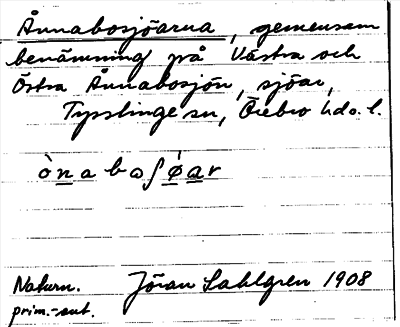 Ånnabosjöarna, gemensam
benämning på Västra och
Östra Ånnabosjön, sjöar,
Tysslinge sn, Örebro hd o. l.
ò n a b ɷ ʃ ǿ a r
Naturn. Jöran Sahlgren 1908
prim.-aut.